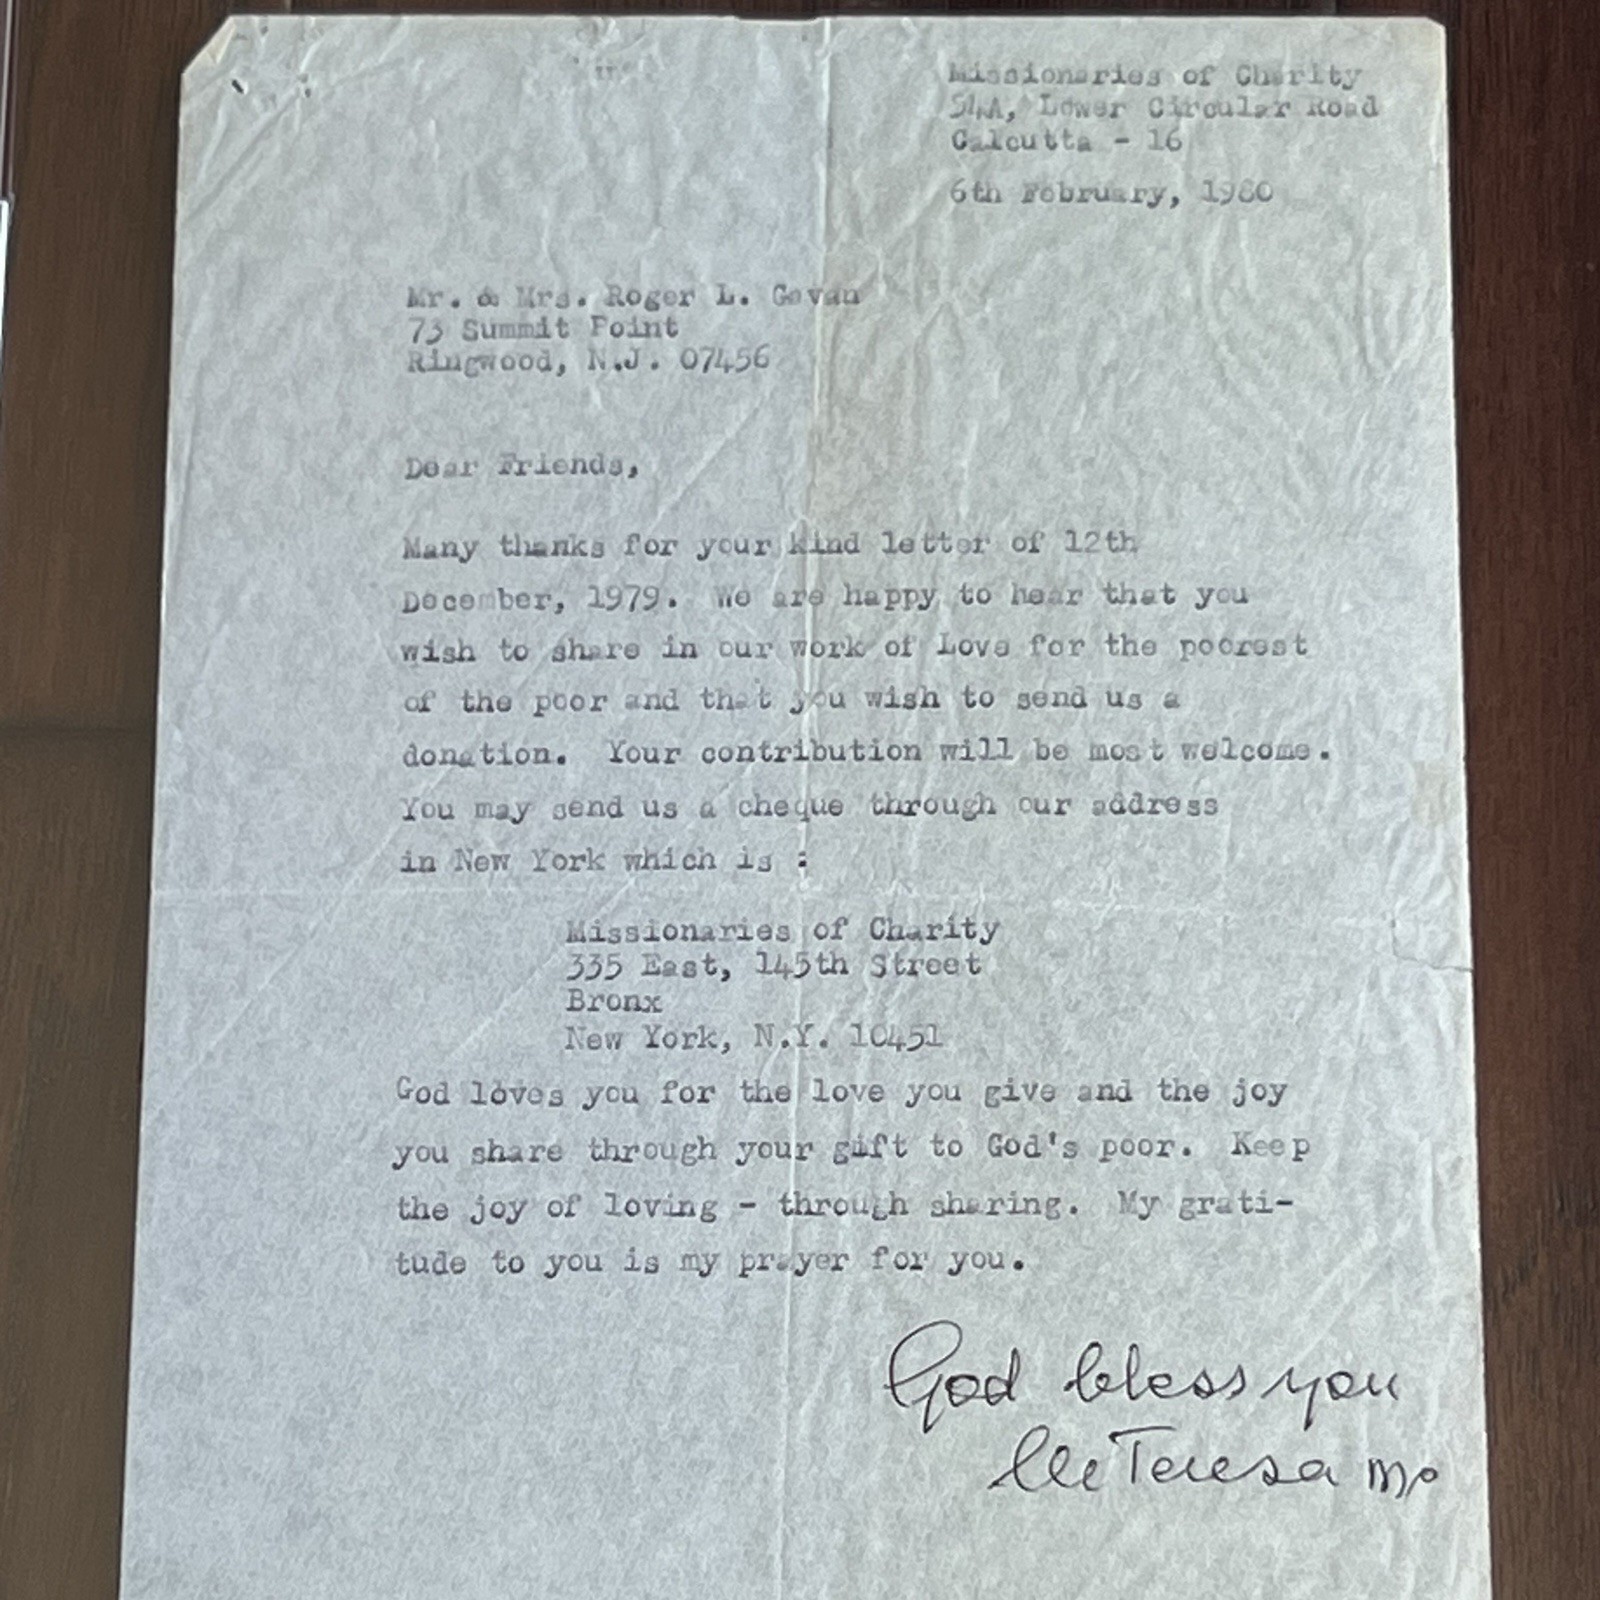 Missionaries of Charity
54A, Lower Circular Road
Calcutta - 16
6th February, 1980
Mr. & Mrs. Roger L. Govan
73 Summit Point
Ringwood, N.J. 07456
Dear Friends,
Many thanks for your kind letter of 12th
December, 1979. We are happy to hear that you
wish to share in our work of Love for the poorest
of the poor and that you wish to send us a
donation. Your contribution will be most welcome.
You may send us a cheque through our address
in New York which is :
Missionaries of Charity
335 East, 145th Street
Bronx
New York, N.Y. 10451
God loves you for the love you give and the joy
you share through your gift to God's poor. Keep
the joy of loving - through sharing. My grati-
tude to you is my prayer for you.
God bless you
M Teresa mc